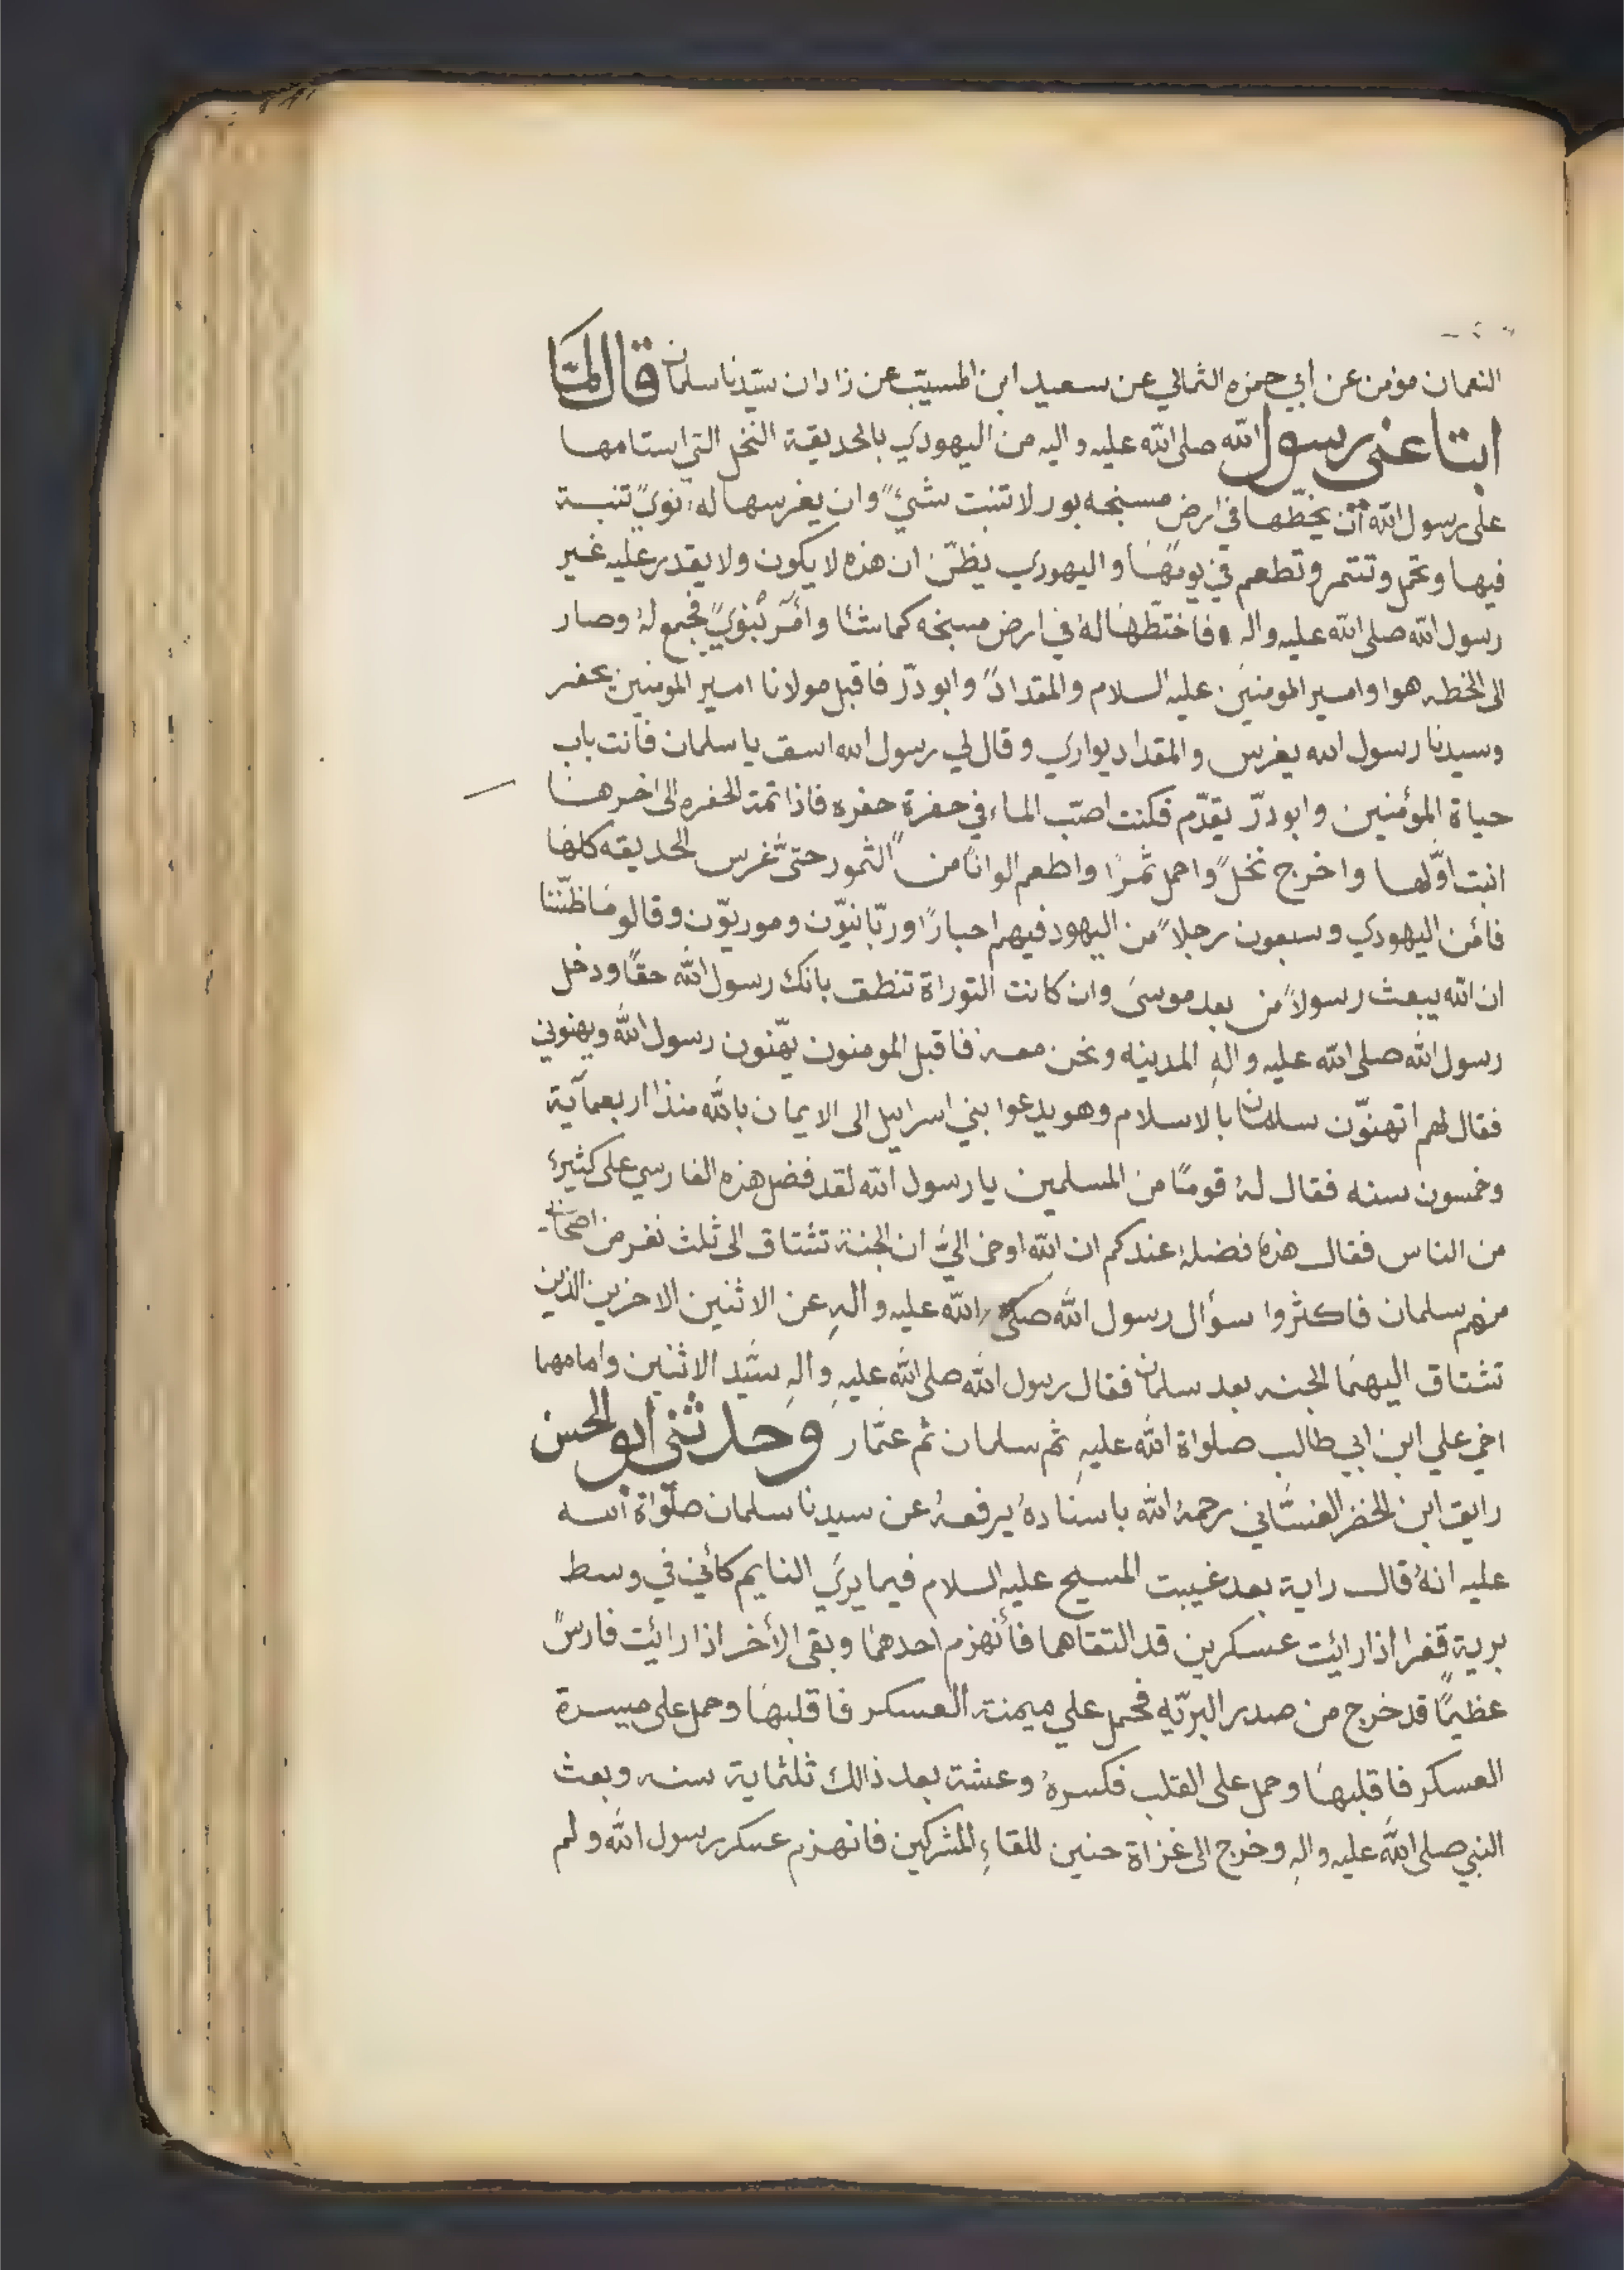 النعمان مؤمن عن أبي حمزه الثمالي عن سعيد ابن المسيّب عن زادان سيّدنا سلمان قال لمّا
ابتاعني رسول الله صلى الله عليه واليه من اليهودي بالحديقية النخل التي استامها
على رسول الله أن يخطّها في ارض مسبخه بور لا تنبت شيءً وان يغرسها له نوىً تنبة
فيها وتحمل وتتمر وتطعم في يومها واليهودي يظنّ ان هذه لا يكون ولا يقدر عليه غير
رسول الله صلى الله عليه واله فاختطّها له في ارض مسبخه كما شا وأمر بنوىً فجمع له وصار
الى الخطه هوا وامير المومنين عليه السلام والمقدادً وابو درّ فاقبل مولانا امير المومنين يحفر
وسيدنا رسول الله يغرس والمقداد يواري وقال لي رسول الله اسق يا سلمان فأنت باب
حياة المؤمنين وابو درّ يقدّم فكنت اصبّ الماء في حفرة حفره فاذا تمة الحفره الى اخرها
انبت اوّلها واخرج نخلً واحمل ثمرًا واطعم الوانًا من الثمور حتى غرس الحديقه كلها
فأمن اليهودي وسبعون رجلاً من اليهود فيهم احبارًا وربّانيوّن وموريوّن وقالو ما ظنّنا
ان الله يبعث رسولاً من بعد موسىَ وان كانت التوراة تنطق بانك رسول الله حقًا ودخل
رسول الله صلى الله عليه والهِ المدينه ونحن معه فاقبل المومنون يهّنون رسول الله ويهنوني
فقال لهم اتهنوّن سلمان بالاسلام وهو يدعوا بني اسراييل الى الايمان بالله منذ اربعمآية
وخمسون سنه فقال لهُ قومًا من المسلمين يا رسول الله لقد فضل هذه الفارسي على كثيرًا
من الناس فقال هذا فضلهُ عندكم ان الله اوحى اليَّ ان الجنة تشتاق الى ثلث نفر من اصحابي
منهم سلمان فاكثروا سؤال رسول الله صلى الله عليه والهِ عن الاثنين الاخرين الذين
تشتاق اليهما الجنه بعد سلمان فقال رسول الله صلى الله عليهِ والهِ سيّد الاثنين وامامهما
اخي علي ابن ابي طالب صلواة الله عليهِ ثم سلمان ثم عمّار وحدثني ابو الحسن
رايق ابن الخضر الغسّاني رحمهُ الله باسنادهُ يرفعهُ عن سيدنا سلمان صلوّاة الله
عليه انهُ قال راية بعد غيبت المسيح عليه السلام فيما يرىَ النايم كأني في وسط
برية قفرا اذا رائت عسكرين قد التقاهما فأنهزم احدهما وبقى الأخر اذا رائت فارسً
عظيمًا قد خرج من صدر البريّه فحمل علي ميمنة العسكر فاقلبها وحمل على ميسرة
العسكر فاقلبها وحمل على القلب فكسرهُ وعشة بعد ذالك ثلثماية سنه وبعث
النبي صلى الله عليه والهِ وخرج الى غزاة حنين للقاءِ المشركين فانهزم عسكر رسول الله ولم